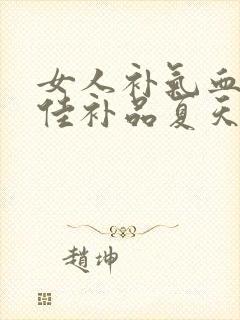 女人补气血
佳补品夏天
趙坤